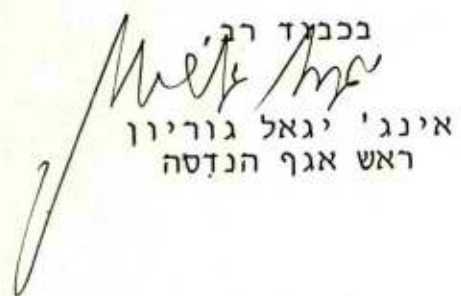 בכבוד רב,
אינג' יגאל גוריון
ראש אגף הנדסה